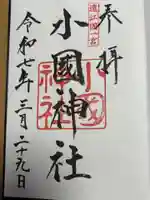 奉拝
遠江国一宮
小國神社
小國神社
令和七年三月二十九日